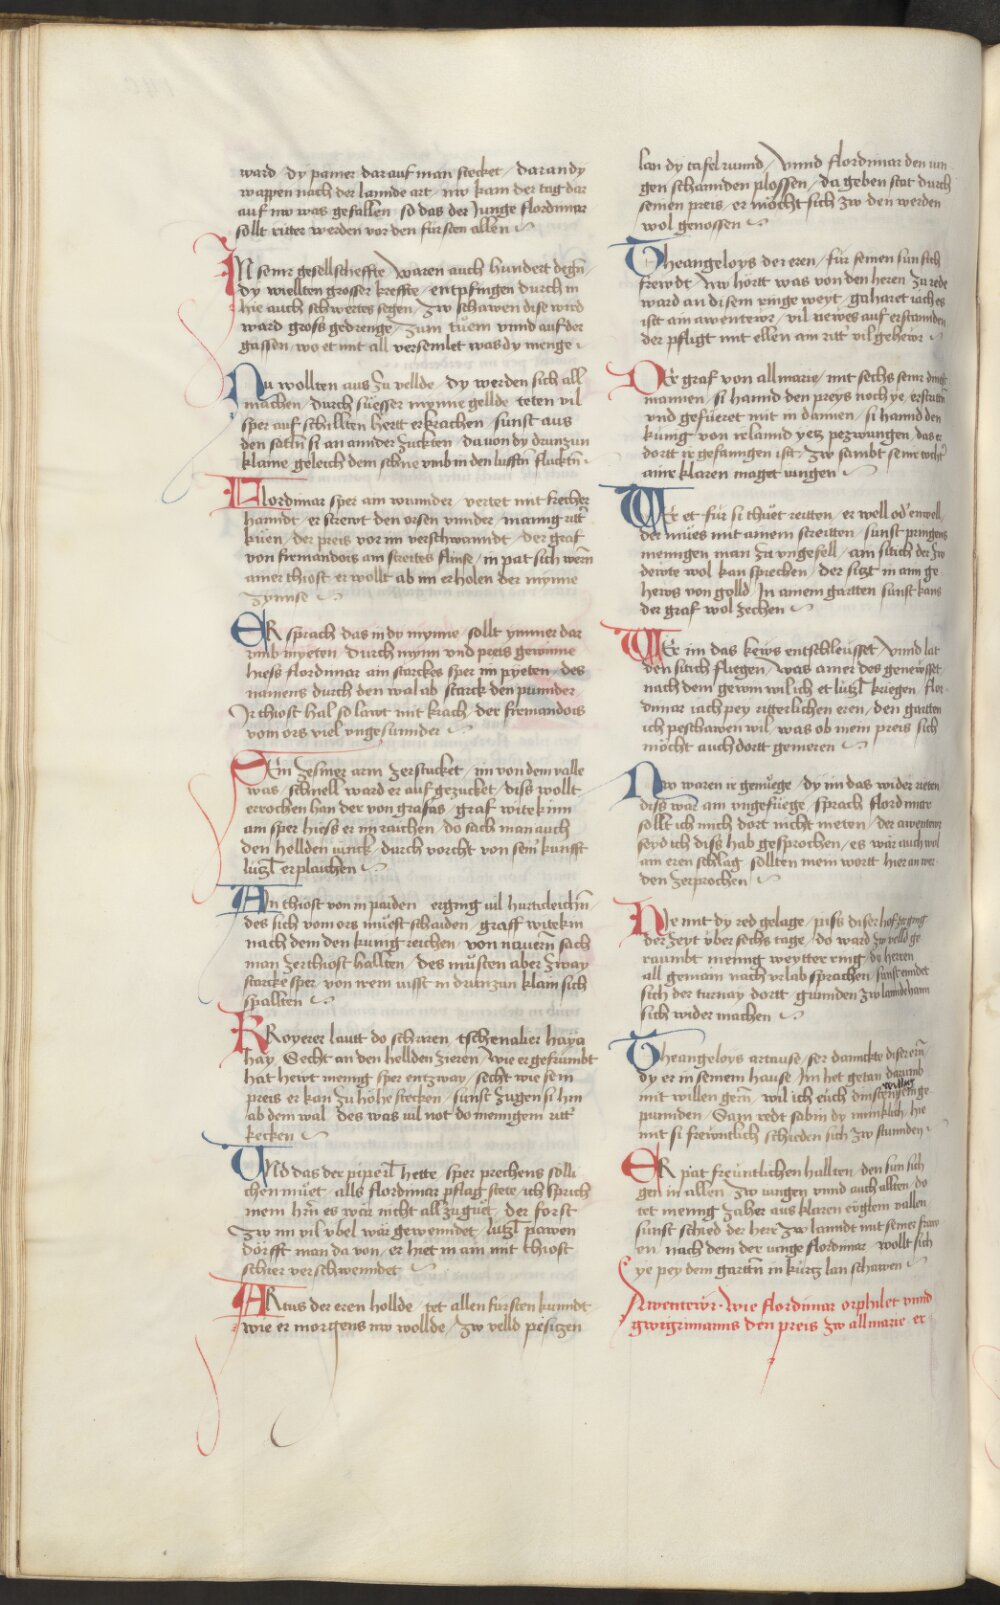 ward / dy paner darauf man stecket / daran dy
wappen nach der lannde art / nw kam der tag dar
auf nw was gefallen / so das der Junge flordimar
sollt ritter werden vor den fürsten allen
IN seinr gesellscheffte / waren auch hundert degn /
dy wiellten grosser kreffte / entpfingen durch in
hie auch schwertes segen / zw schawen dise wird
ward gross gedrenge / zum tuem vnnd auf der
gassen / wo et mit all versemlet was dy menge
Nu wollten aus zu vellde / dy werden sich all
machen / durch süesser mynne gellde / teten vil
sper auf schillten hertt erkrachen / sunst aus
den sateln si an annder zuckten / da von dy drunzun
klaine geleich dem schne vmb in den lufften fluckten
Flordimar sper ain wunnder / vertet mit frecher
hanndt / er strewt den orsen vnnder / manig ritter
küen / der preis vor im verschwanndt / der graf
von fremandois am streites flinse / in pat sich wern
ainer thiost er wollt ab im erholen der mynne
zynnse
ER sprach das in dy mynne / sollt ymmer dar
vmb myeten / durch mynn vnd preis gewinne
hiess flordimar ain starckes sper im pyeten / des
namens durch den wal ab starck den punnder
Ir thiost hal so lawt mit krach / der fremandois
vom ors viel vngesunnder
Sein zesmer arm zerstucket / im von dem valle
was / schnell ward er auf gezucket / diss wollt
errochen han der von grasas / graf witekinn
ain sper hiess er im raichen / do sach man auch
den hellden iunck / durch vorcht von sein kunfft
lützl erplaichen
Ain thiost von in paiden / erging vil hurticleichn /
des sich vom ors müest schaiden / graff witekin
nach dem den kunig reichen / von nauern sach
man zer thiost hallten / des müsten aber zway
starcke sper / von irem iusst in drunzun klain sich
spallten
KRoyerer lautt do schriren / tschenaliers haya
hay / Secht an den hellden zieren / wie er gefrumbt
hat hewt menig sper entzway / secht wie sein
preis er kan zu höhe stecken / sunst zugen si hin
ab dem wal / des was vil not do menigem ritter
kecken
VNd das der piperl hette / sper prechens sölli
chen müet / alls flordimar pflag stete / ich sprich
mein hrn es wär nicht all zu guet / der forst
zw im vil vbel wär gewenndet / lützl pawen
dorfft man da von / er hiet in ain mit thiost
schier verschwenndet
ARtus der eren hollde / tet allen fürsten kunndt
wie er morgens nw wollde / zw velld pesitzen
lan dy tafelrunnd / Vnnd flordimar den iun
gen schannden plossen / da geben stat durch
seinen preis / er möcht sich zw den werden
wol genossen
Theangeloys der eren / für seinen sun sich
frewdt / Nw hörtt was von den heren / zu rede
ward an disem ringe weyt / gaharet iach es
istt ain awentewr / vil newes auf erstannden
der pfligt mit ellen ain ritter vil gehewr
Der graf von allmarie / mit sechs seinr dinst
mannen / si hannd den preys noch ye / erstritten
vnd gefüeret mit in dannen / si hannd den
kunig von irlannd yetz pezwungen / das er
dortt ir gefanngen ist / zw sambt seinr tochter
ainr klaren maget iungen
Wer et für si thuet reitten / er well oder enwell
der mües mit ainem streitten / sunst pringens
menngen man zu vngefell / ain sitich der zw
dewte wol kan sprechen / der sitzt in aim ge
hews von golld / In ainem gartten sunst kans
der graf wol zechen
Wer im das kews entschleusset / Vnnd lat
den sitich fliegen / was ainer des genewsset
nach dem gewin wil ich et lützl kriegen / flor
dimar iach pey ritterlichen eren / den gartten
ich peschawen wil / was ob mein preis sich
möcht auch dortt gemeren
Nwo waren ir genuege / dy im das wider rieten
diss wär ain vngefüege / sprach flordimar
sollt ich mich dort nicht nieten / der awentewr
seyd ich diss hab gesprochen / es wär auch wol
ain eren schlag / sollten mein wortt hieran wer
den zerprochen
Nie mit dy red gelage / piss diser hof zerging
der zeyt über sechs tage / do ward zw velld ge
raumbt menig weytter ring / do herren
all gemain nach vrlab sprachen / sunst endet
sich der turnay dortt / gunnden zw lannde hann
sich wider machen
Theangeloys artause / ser dannckte diser ern /
dy er in seinem hause / Im het getan darumb
mit willen gern / wil ich euch dinstes willig ein ge
punnden / Sam redt sabin dy minnklich / hie
mit si frewntlich schieden sich zw stunnden
ER pat frewntlichen hallten / den sun sich
gen in allen / zw iungen vnnd auch allten / do
tet menig zaher aus klaren euglein vallen
sunst schied der herr zw lanndt mit seiner fraw
en / nach dem der iunge flordimar / wollt sich
ye pey dem gartten in kurtz lan schawen
Awentewr · wie flordimar orphilet vnnd
gwigrimanns den preis zw allmarie er